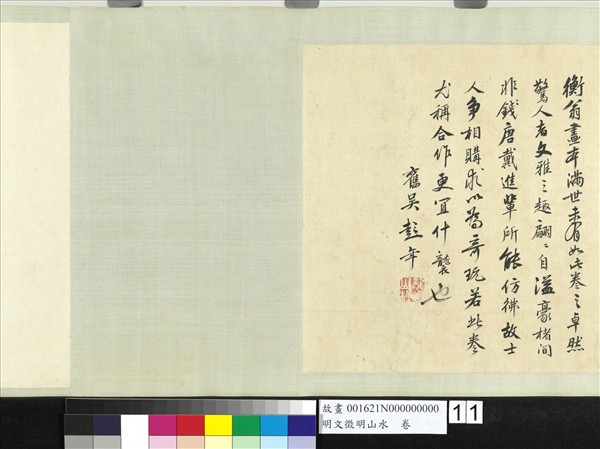 衡翁畫本滿世未有如此卷之卓然
驚人者文雅之趣翩〻自溢豪楮間
非錢唐戴進輩所能仿彿故士
人爭相購求以為奇玩若此卷
尤稱合作更宜什襲也
舊吳彭年
故畫 001621N000000000
明文徵明山水 卷
11